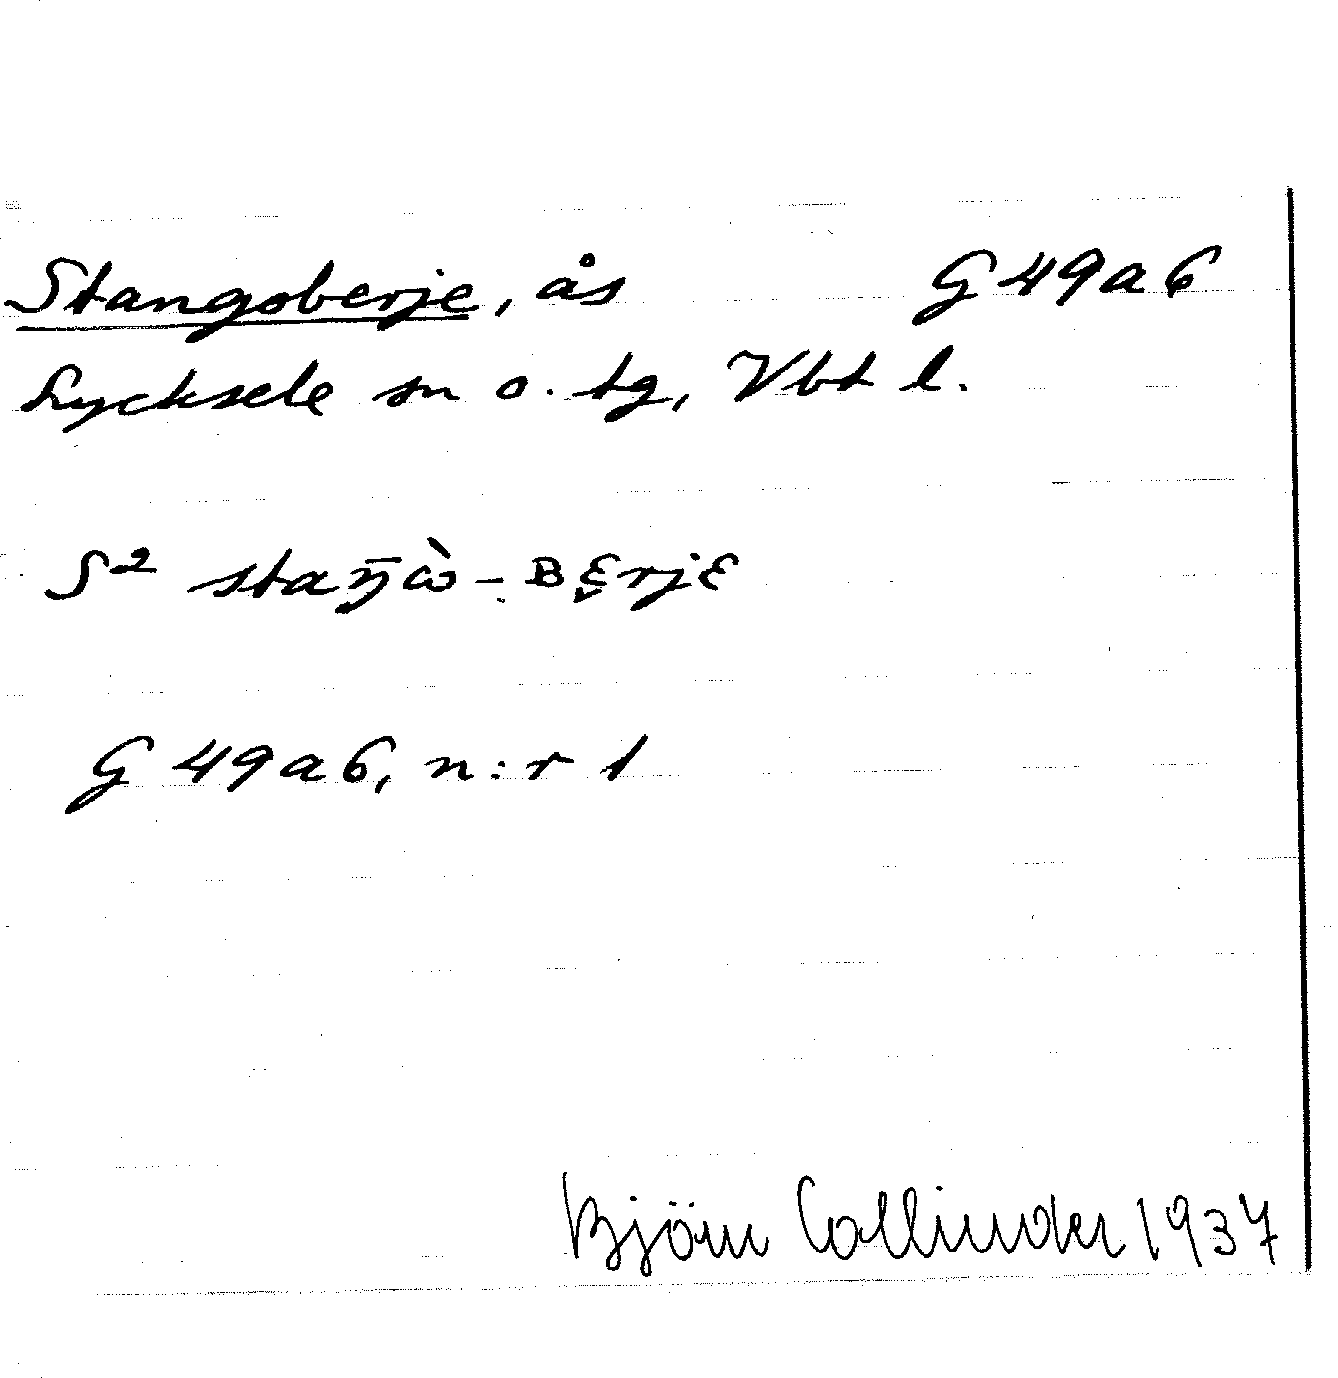 Stangoberje, ås G 49 a 6
Lycksele sn o. tg, Vbt l.
S² staŋ̄ὼ-ʙɛ̬rjɛ
G 49 a 6, n:r 1
Björn Collinder 1937